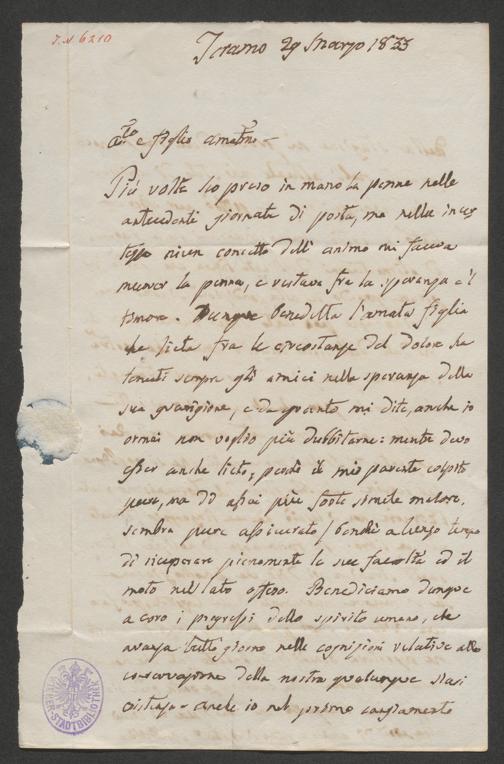 I.N 6210
Teramo 29 Marzo 1833
A.co e figlio amatmo
Più volte ho preso in mano la penna nelle
antecedenti giornate di posta, ma nelle incer
tezze niun concetto dell' animo mi faceva
muover la penna, e restava fra la speranza e 'l
timore. Dunque benedetta l'amata figlia
che lieta fra le circostanze del dolore ha
tenuti sempre gli amici nella speranza della
sua guarigione, e da quanto mi dite, anche io
ormai non voglio più dubbitarne: mentre devo
esser anche lieto, perchè il mio parente colpito
pure, ma di assai più forte simile malore,
sembra pure assicurato, benchè a lungo tempo
di ricuperare pienamente le sue facoltà ed il
moto nel lato offeso. Benediciamo dunque
a coro i progressi dello spirito umano, che
avanza tutto giorno nelle cognizioni relative alla
conservazione della nostra qualunque siasi
esistenza - anche io nel prossimo cangiamento
WIENER STADTBIBLIOTHEK